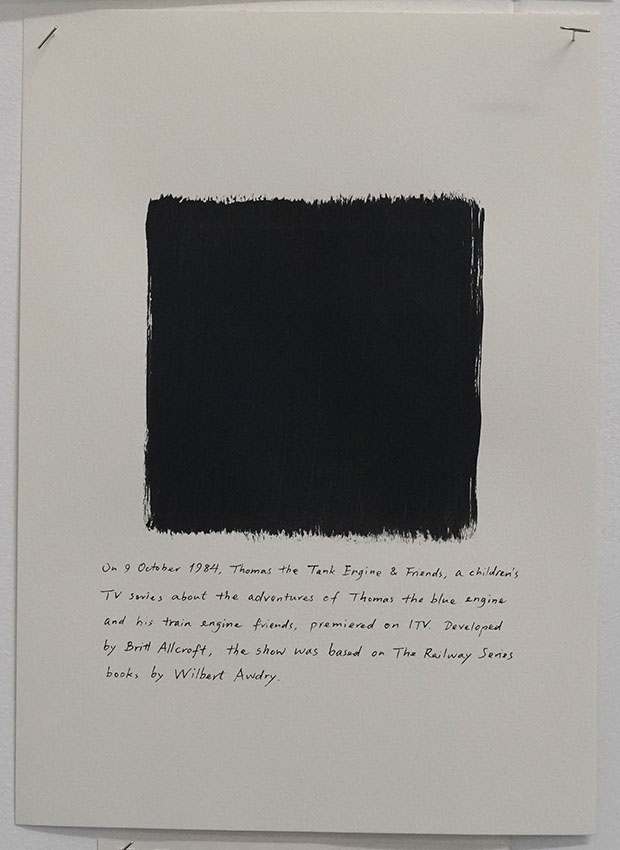 On 9 October 1984, Thomas the Tank Engine & Friends, a children's
TV series about the adventures of Thomas the blue engine
and his train engine friends, premiered on ITV. Developed
by Britt Allcroft, the show was based on The Railway Series
books by Wilbert Awdry.